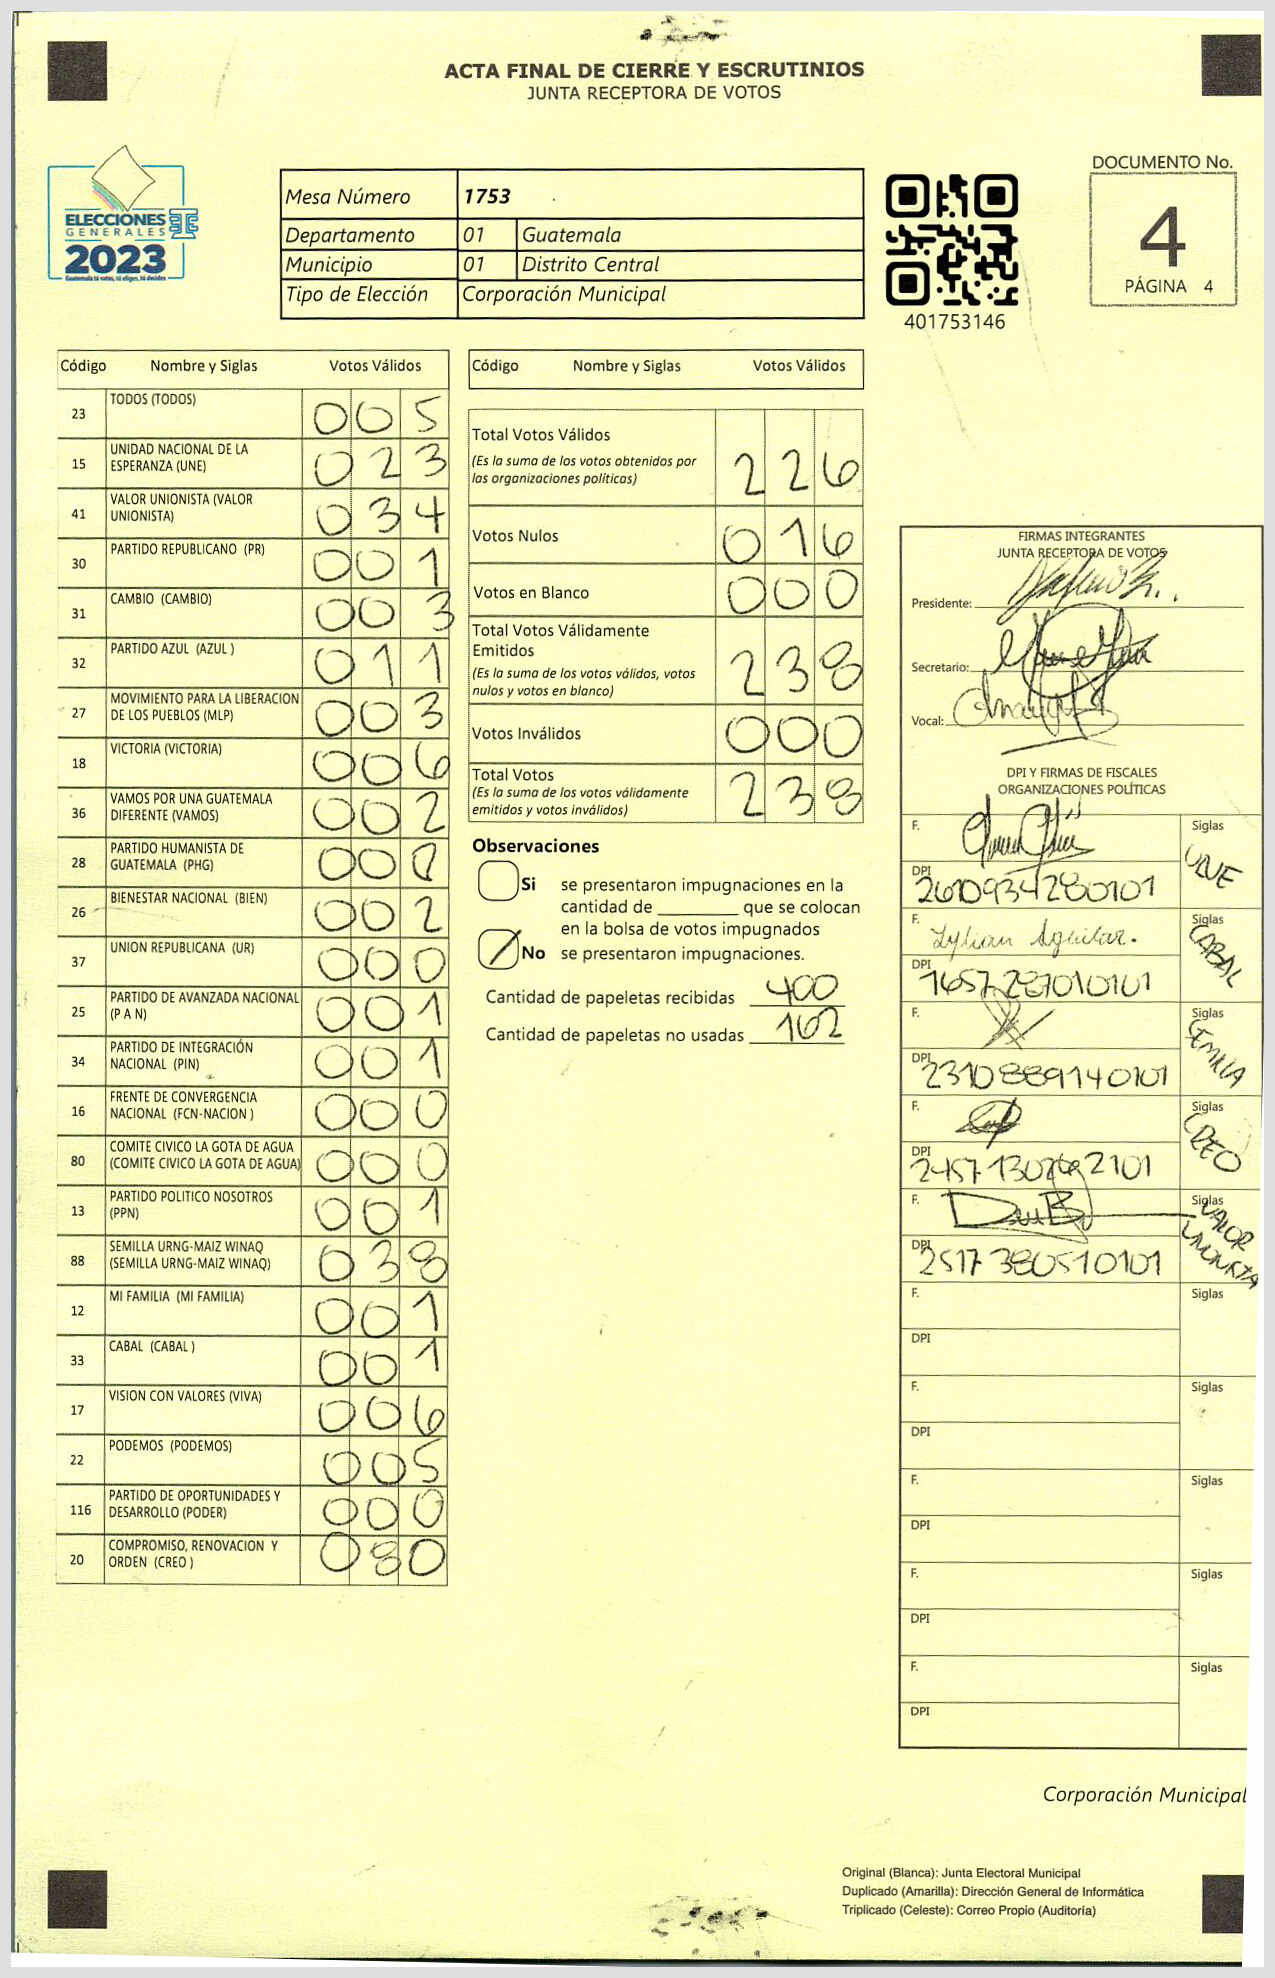 ACTA FINAL DE CIERRE Y ESCRUTINIOS
JUNTA RECEPTORA DE VOTOS
ELECCIONES
GENERALES
2023
Guatemala tú votas, tú eliges, tú decides
Mesa Número 1753
Departamento 01 Guatemala
Municipio 01 Distrito Central
Tipo de Elección Corporación Municipal
401753146
DOCUMENTO No.
4
PÁGINA 4
Código Nombre y Siglas Votos Válidos
23 TODOS (TODOS) 005
15 UNIDAD NACIONAL DE LA
ESPERANZA (UNE) 023
41 VALOR UNIONISTA (VALOR
UNIONISTA) 034
30 PARTIDO REPUBLICANO (PR) 001
31 CAMBIO (CAMBIO) 003
32 PARTIDO AZUL (AZUL ) 011
27 MOVIMIENTO PARA LA LIBERACION
DE LOS PUEBLOS (MLP) 003
18 VICTORIA (VICTORIA) 006
36 VAMOS POR UNA GUATEMALA
DIFERENTE (VAMOS) 002
28 PARTIDO HUMANISTA DE
GUATEMALA (PHG)
26 BIENESTAR NACIONAL (BIEN) 002
37 UNION REPUBLICANA (UR) 000
25 PARTIDO DE AVANZADA NACIONAL
(P A N) 001
34 PARTIDO DE INTEGRACIÓN
NACIONAL (PIN) 001
16 FRENTE DE CONVERGENCIA
NACIONAL (FCN-NACION ) 000
80 COMITE CIVICO LA GOTA DE AGUA
(COMITE CIVICO LA GOTA DE AGUA) 000
13 PARTIDO POLITICO NOSOTROS
(PPN) 001
88 SEMILLA URNG-MAIZ WINAQ
(SEMILLA URNG-MAIZ WINAQ) 038
12 MI FAMILIA (MI FAMILIA) 001
33 CABAL (CABAL ) 001
17 VISION CON VALORES (VIVA) 006
22 PODEMOS (PODEMOS) 005
116 PARTIDO DE OPORTUNIDADES Y
DESARROLLO (PODER) 000
20 COMPROMISO, RENOVACION Y
ORDEN (CREO ) 080
Código Nombre y Siglas Votos Válidos
Total Votos Válidos
(Es la suma de los votos obtenidos por
las organizaciones políticas) 226
Votos Nulos 016
Votos en Blanco 000
Total Votos Válidamente
Emitidos
(Es la suma de los votos válidos, votos
nulos y votos en blanco) 238
Votos Inválidos 000
Total Votos
(Es la suma de los votos válidamente
emitidos y votos inválidos) 238
Observaciones
Si se presentaron impugnaciones en la
cantidad de ________ que se colocan
en la bolsa de votos impugnados
No se presentaron impugnaciones.
Cantidad de papeletas recibidas 400
Cantidad de papeletas no usadas 162
FIRMAS INTEGRANTES
JUNTA RECEPTORA DE VOTOS
Presidente:
Secretario:
Vocal:
DPI Y FIRMAS DE FISCALES
ORGANIZACIONES POLÍTICAS
F. Siglas UNE
DPI 2610934280101
F. Lylian Aguilar. Siglas CABAL
DPI 1657287010101
F. Siglas SEMILLA
DPI 2310889140101
F. Siglas CREO
DPI
F. Siglas VALOR
UNIONISTA
DPI 2517380510101
F. Siglas
DPI
F. Siglas
DPI
F. Siglas
DPI
F. Siglas
DPI
F. Siglas
DPI
Corporación Municipal
Original (Blanca): Junta Electoral Municipal
Duplicado (Amarilla): Dirección General de Informática
Triplicado (Celeste): Correo Propio (Auditoría)